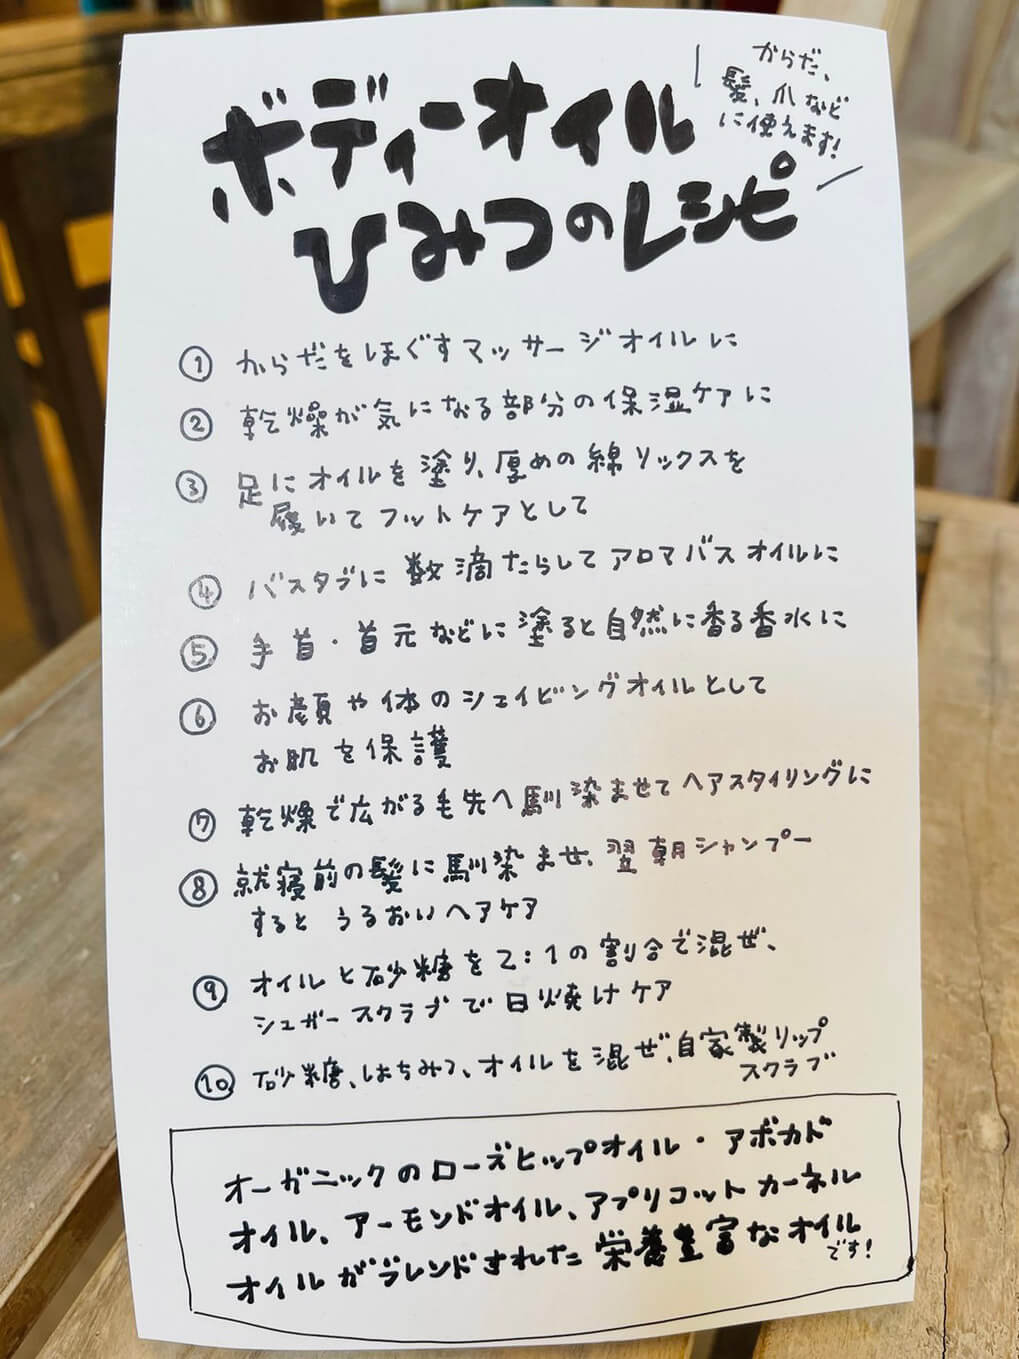 ボディーオイル
ひみつのレシピ
からだ、
髪、爪など
に使えます!
① からだをほぐすマッサージオイルに
② 乾燥が気になる部分の保湿ケアに
③ 足にオイルを塗り、厚めの綿リックスを
履いてフットケアとして
④ バスタブに数滴たらしてアロマバスオイルに
⑤ 手首・首元などに塗ると自然に香る香水に
⑥ お顔や体のシェイビングオイルとして
お肌を保護
⑦ 乾燥で広がる毛先へ馴染ませてヘアスタイリングに
⑧ 就寝前の髪に馴染ませ、翌朝シャンプー
すると うるおいヘアケア
⑨ オイルと砂糖を2:1の割合で混ぜ、
シュガースクラブで日焼けケア
⑩ 砂糖、はちみつ、オイルを混ぜ、自家製リップ
スクラブ
オーガニックのローズヒップオイル・アボカド
オイル、アーモンドオイル、アプリコットカーネル
オイルがブレンドされた栄養豊富なオイル
です!